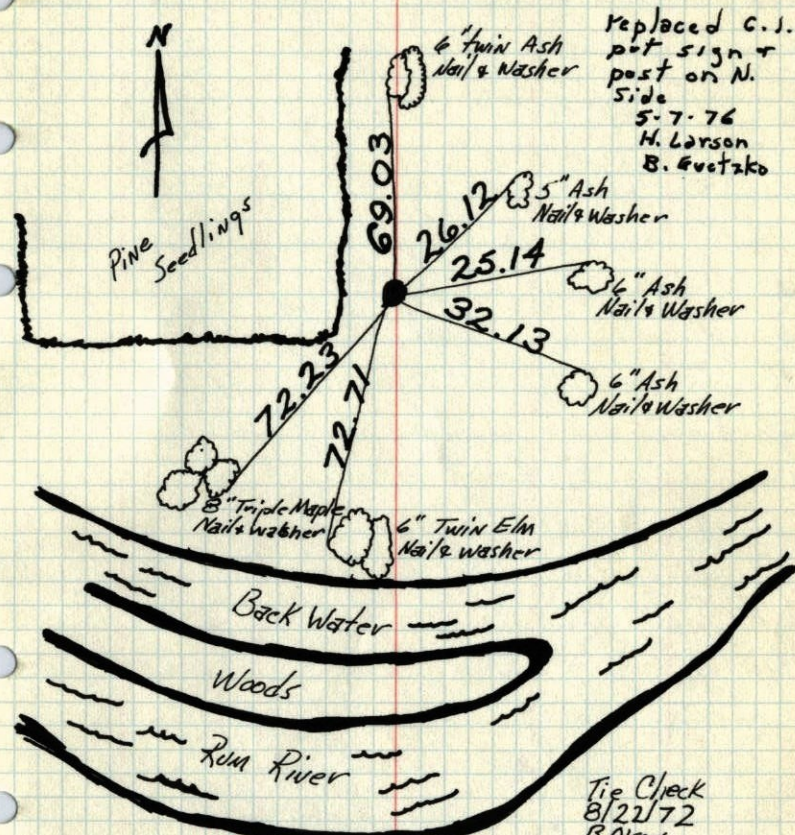 N
6" twin Ash
Nail & Washer
replaced C.I.
put sign &
post on N.
Side
5-7-76
H. Larson
69.03
26.12
5" Ash
Nail & Washer
Pine
Seedlings
25.14
6" Ash
Nail & Washer
32.13
6" Ash
Nail & Washer
72.23
72.71
8" Triple Maple
Nail & washer
6" Twin Elm
Nail & washer
Back Water
Woods
Rum River
Tie Check
8/22/72